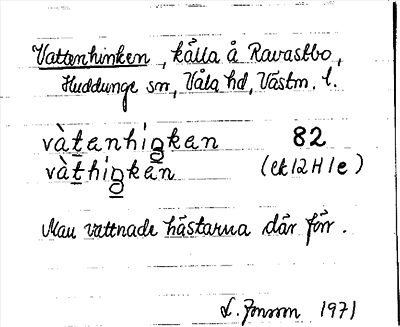 Vattenhinken, källa å Ravastbo,
Huddunge sn, Våla hd, Västm. l.
vàtenhiŋken 82
vàthiŋken (ek 12H1e)
Man vattnade hästarna där förr.
L. Jonsson 1971